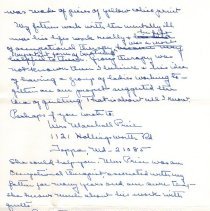 was made of pieces of yellow
My father work with the mentally ill
was his life's work really
of occupational therapy
helpful to them. Group therapy was
not known then
of having a group of ladies working to-
gether on one project suggested the
idea of quilting. That is about all I know.
Perhaps if you wrote to
Mrs Marshall Price
1121 Hollingsworth Rd
Joppa, Md - 21085
She could help you. Mrs Price was an
Occupational Therapist associated with my
father for many years and am sure
she knows much about his work with
quilts